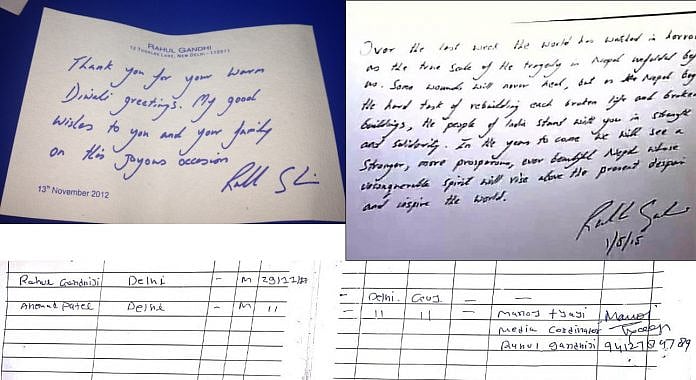 RAHUL GANDHI
12 TUGHLAK LANE, NEW DELHI - 110011
Thank you for your warm
Diwali greetings. My good
wishes to you and your family
on this joyous occasion
13th November 2012
Over the last week the world has watched in horror
as the true scale of the tragedy in Nepal unfolded
us. Some wounds will never heal, but as the Nepal
the hard task of rebuilding each broken life and broken
buildings, the people of India stand with you in strength
and solidarity. In the years to come we will see a
Stronger, more prosperous, ever beautiful Nepal whose
unconquerable spirit will rise above the present despair
and inspire the world.
1/5/15
Rahul Gandhiji Delhi - M
Ahemad Patel Delhi - M 11
- Delhi. - -
- 11 11 - Manoj tyagi Manoj
Media Cordinator
Rahul gandhiji